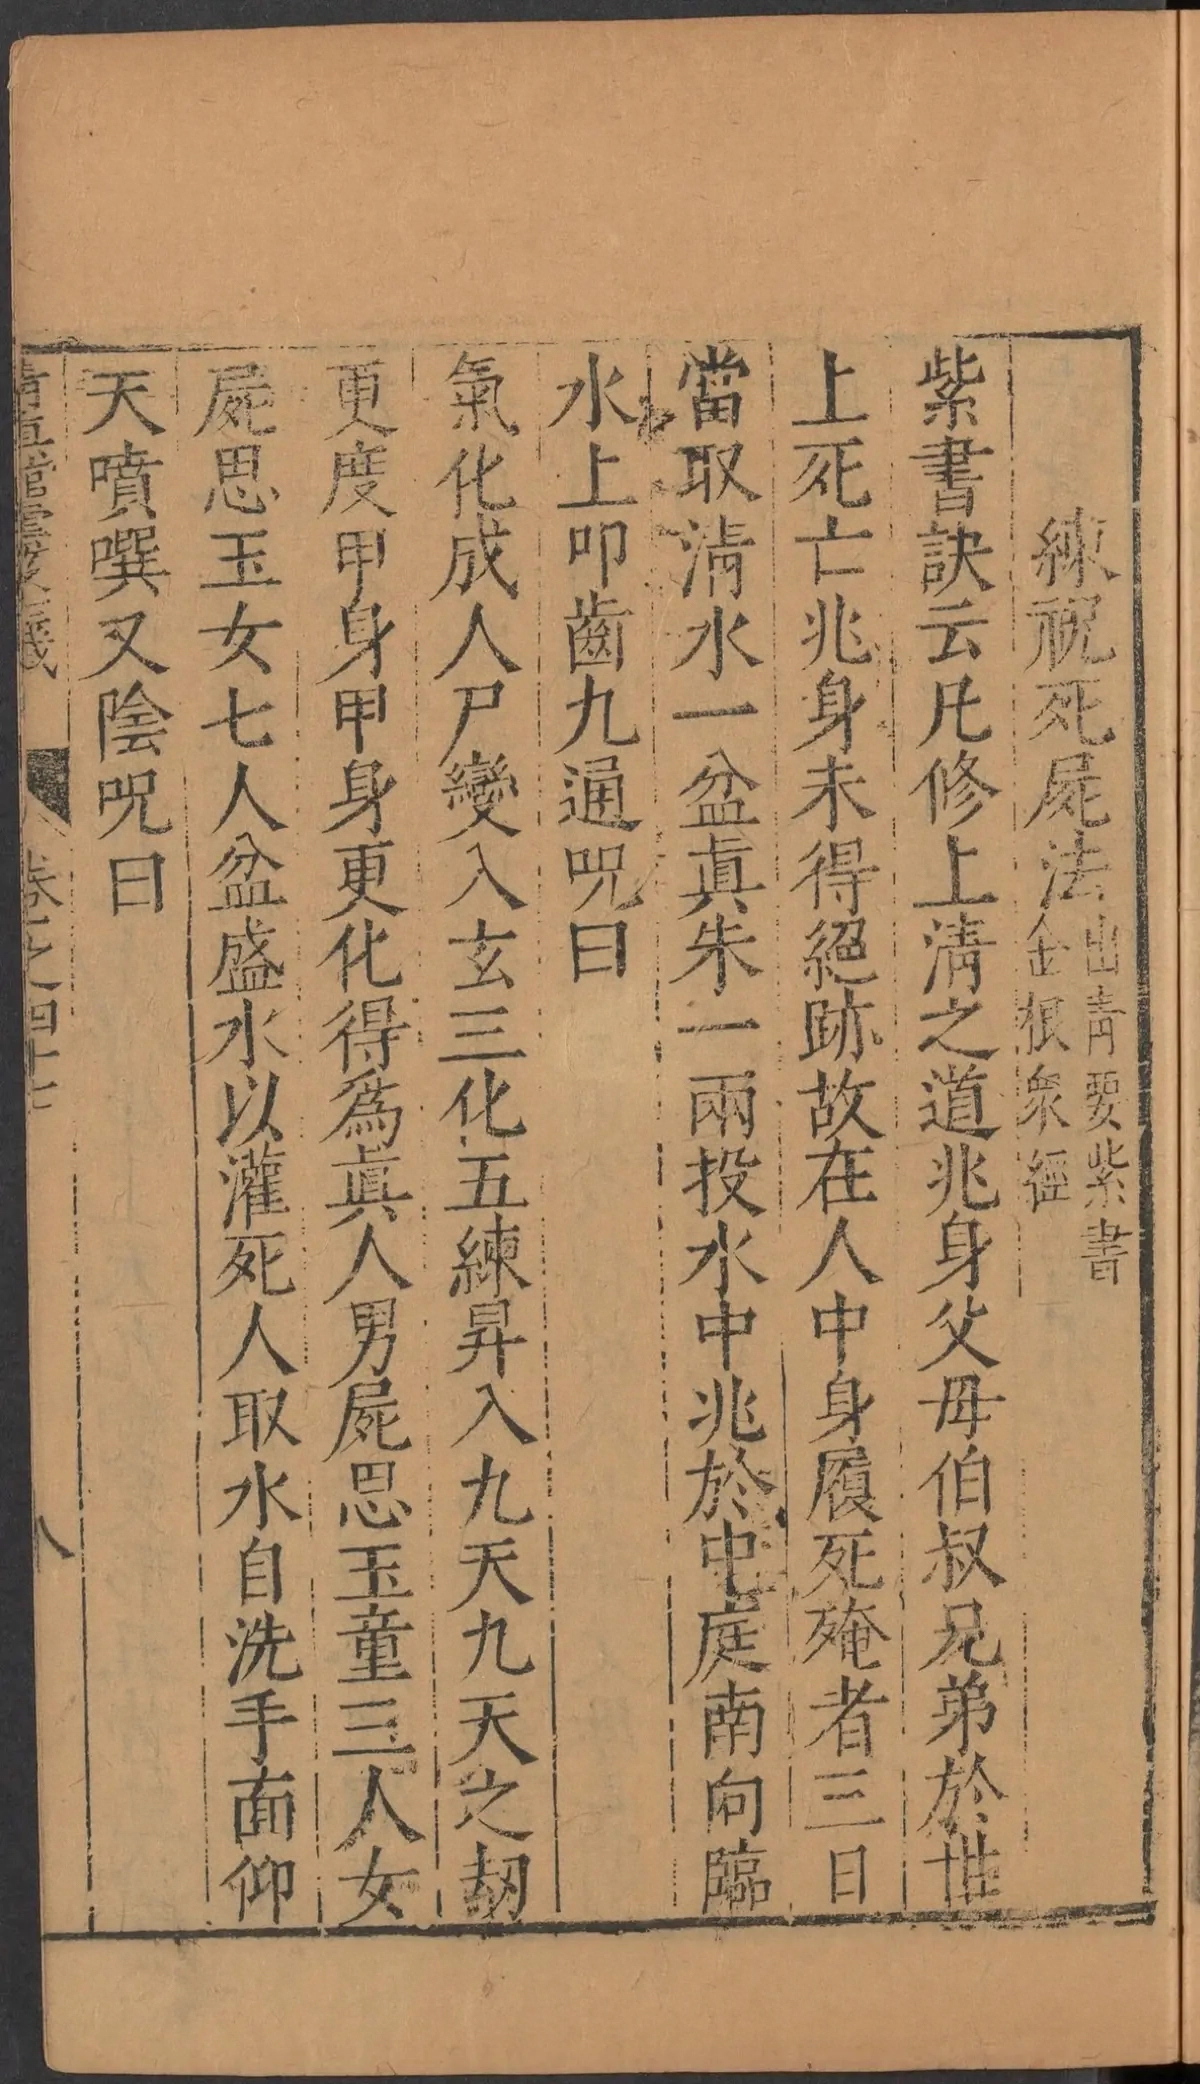 練祝死屍法出青要紫書金根衆經
紫書訣云凡修上清之道兆身父母伯叔兄弟於世
上死亡兆身未得絕跡故在人中身履死殗者三日
當取淸水一盆眞朱一兩投水中兆於中庭南向臨
水上叩齒九通呪曰
氣化成人尸變入玄三化五練昇入九天九天之劫
更度甲身甲身更化得爲眞人男屍思玉童三人女
屍思玉女七人盆盛水以灌死人取水自洗手面仰
天噴噀又陰呪曰
卷之四十七
八